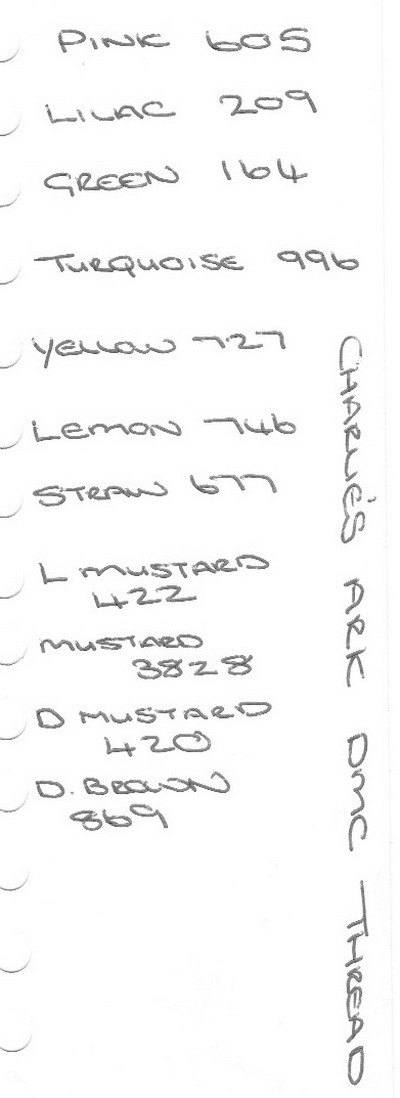 PINK 605
LILAC 209
GREEN 164
TURQUOISE 996
YELLOW 727
LEMON 746
STRAW 677
L MUSTARD
422
MUSTARD
3828
D MUSTARD
420
D. BROWN
869
CHARLIE'S ARK DMC THREAD